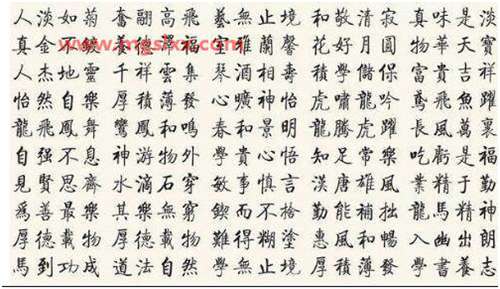 人淡如菊 奮翮高飛 藝無止境 和敬清寂 真味是淡
真金不 養德 福 室雅蘭馨 花好月圓 物華天寶
人杰地靈 千祥雲集 琴酒相壽 積學儲保 富貴吉祥
怡然自樂 厚積薄發 心曠神怡 虎嘯龍吟 鳶飛魚躍
龍飛鳳舞 鸞鳳和鳴 春和景明 龍騰虎躍 長風萬裏
自强不息 神游物外 學貴心悟 知足常樂 吃虧是福
見賢思齊 水滴石穿 敏事慎言 漢唐雄風 業精于勤
爲善最樂 其樂無窮 鍥而不捨 勤能補拙 龍馬精神
厚德載物 厚德載物 難得糊塗 惠風和暢 入幽出朗
馬到功成 道法自然 學無止境 厚積薄發 學書養志